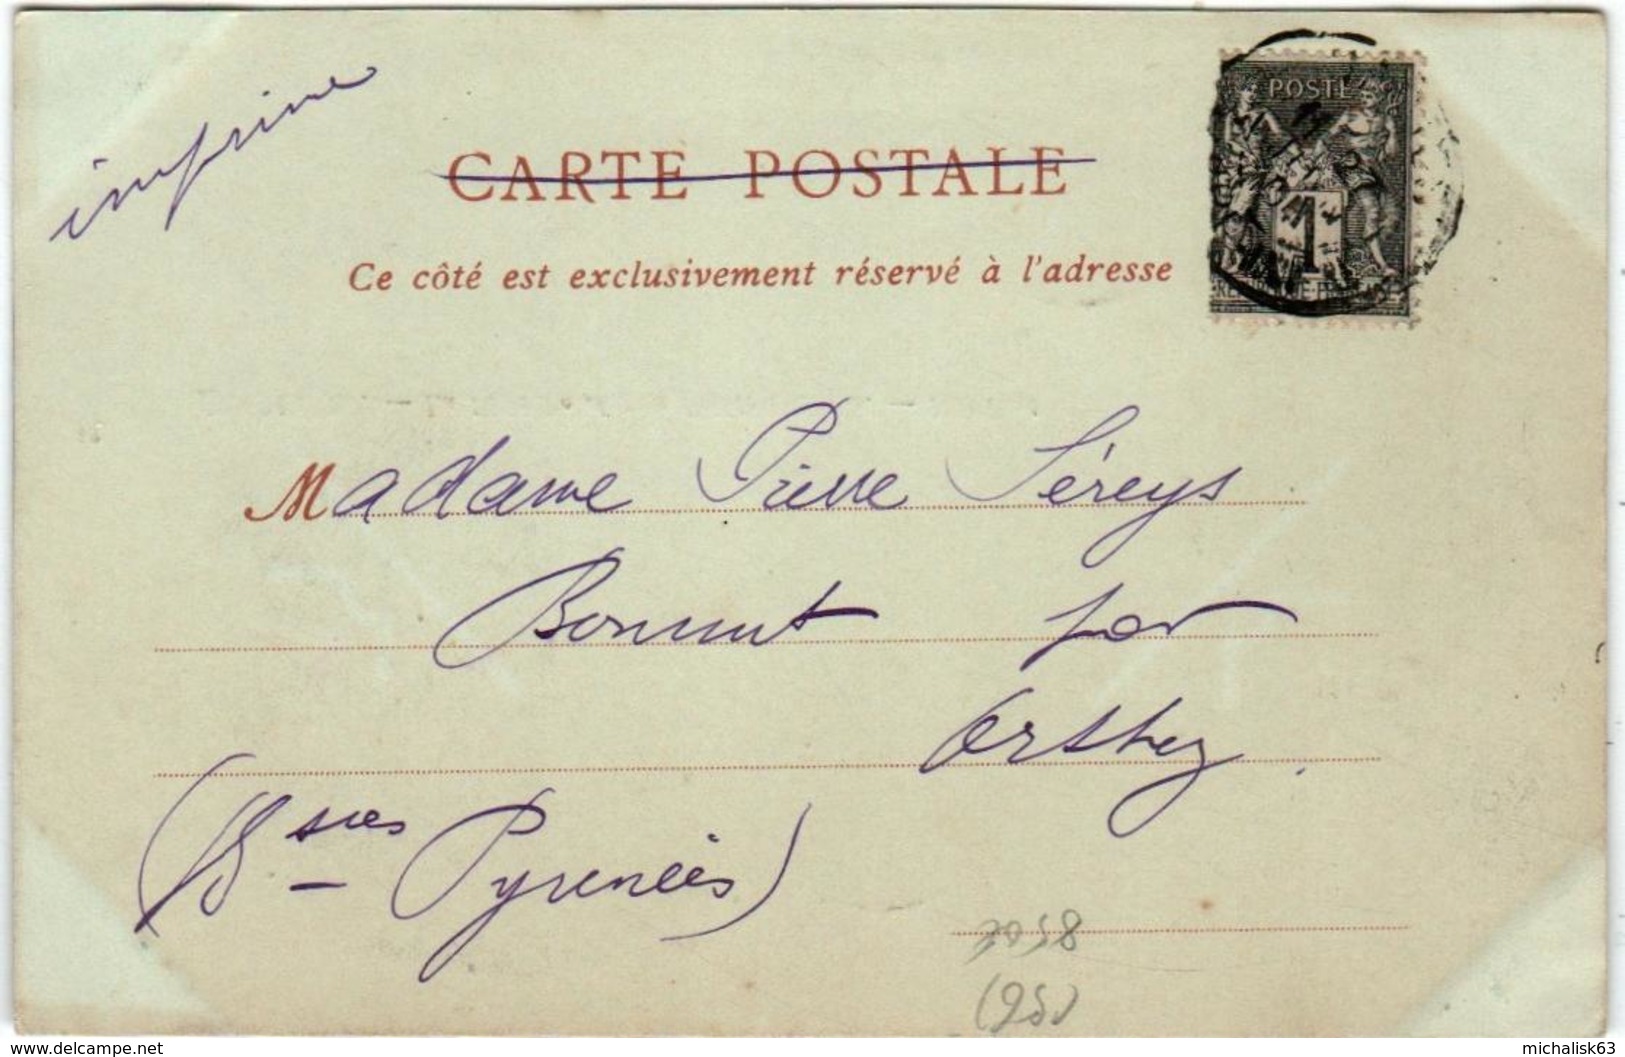 imprime
CARTE POSTALE
POSTE
1
Ce côté est exclusivement réservé à l'adresse
Madame Pierre Séreys
Bonnut par
Orthez.
(Bsses Pyrenées)
3058
(95)
www.delcampe.net
michalisk63